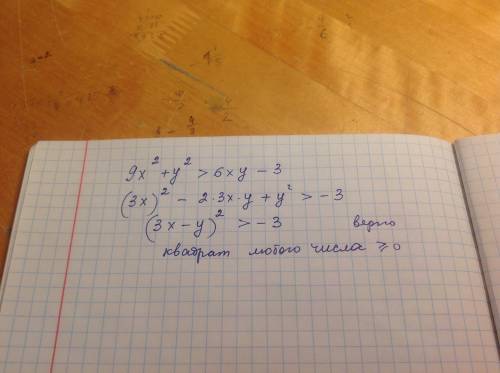 9x² + y² > 6xy - 3
(3x)² - 2·3x·y + y² > -3
(3x - y)² > -3 верно
квадрат любого числа ⩾ 0